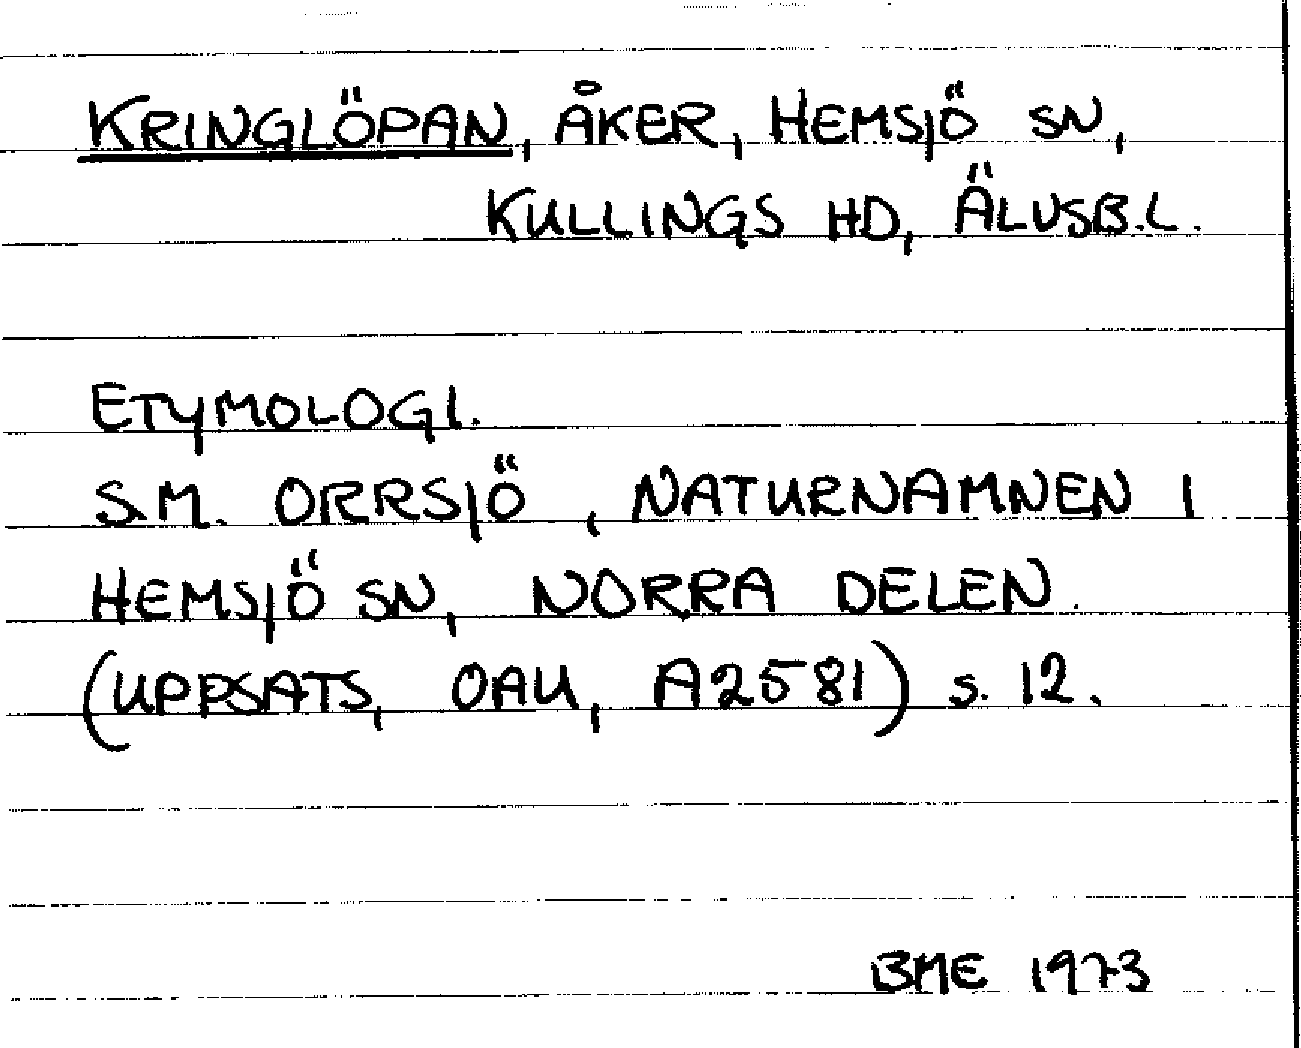 KRINGLÖPAN, ÅKER, HEMSJÖ SN,
KULLINGS HD, ÄLVSB.L.
ETYMOLOGI.
S.M. ORRSJÖ, NATURNAMNEN I
HEMSJÖ SN, NORRA DELEN.
(UPPSATS, OAU, A2581) s. 12.
BME 1973